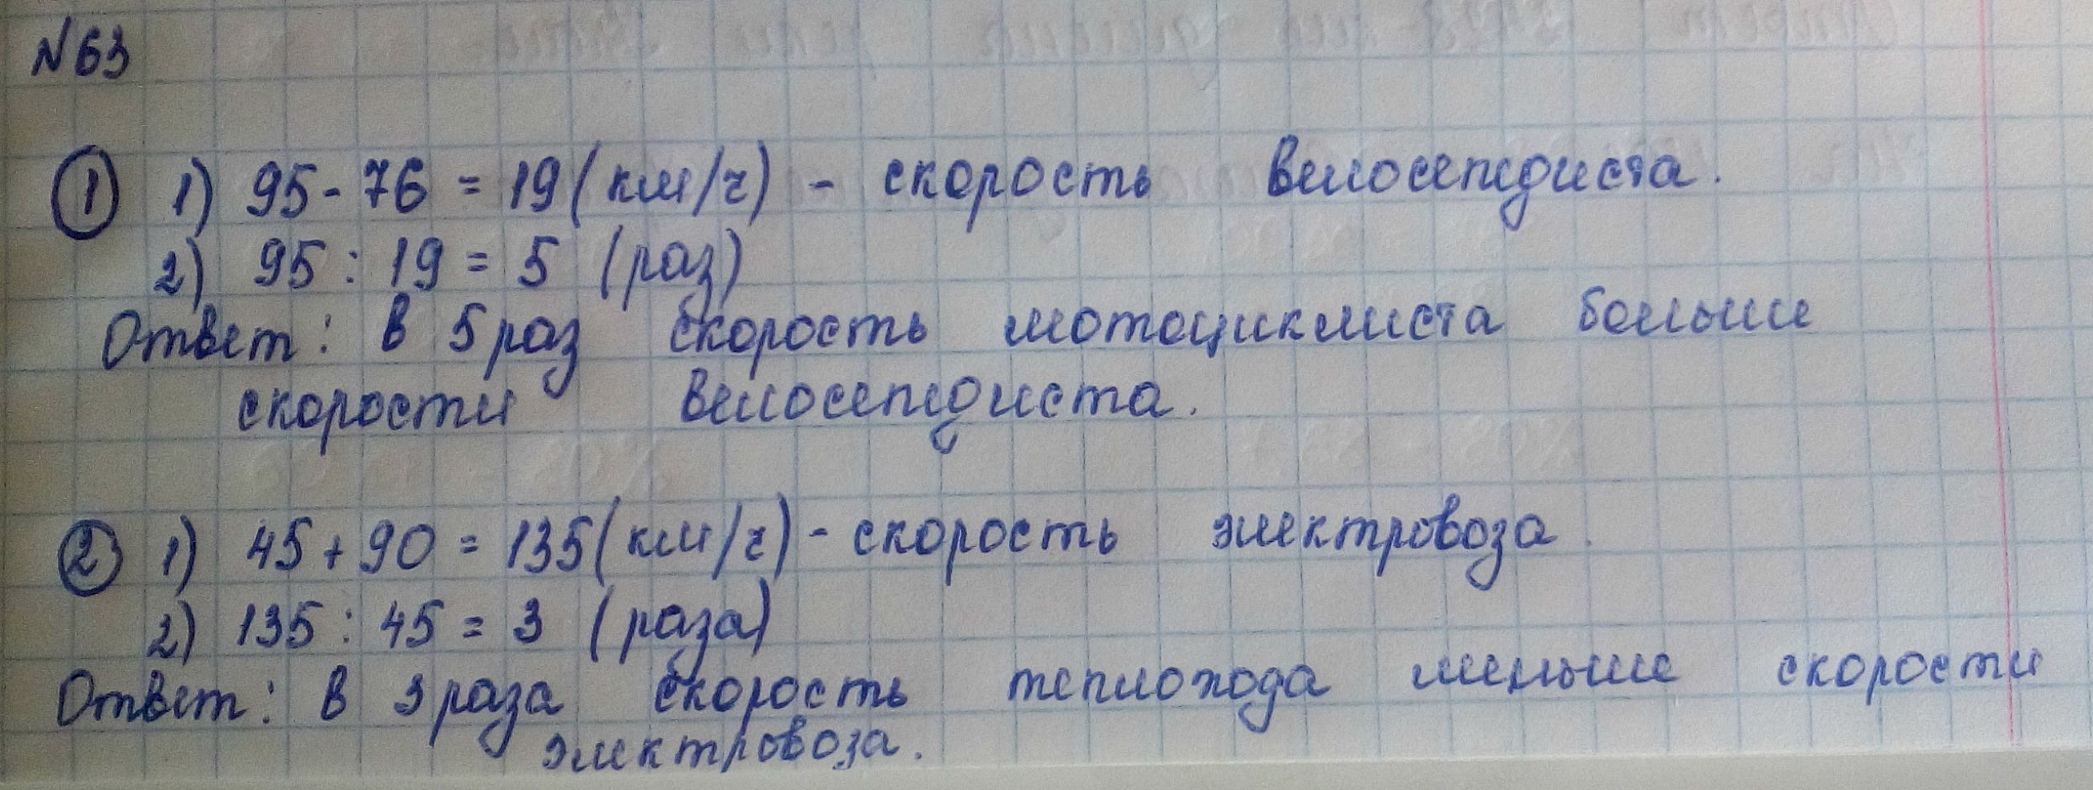 №63
① 1) 95 - 76 = 19 (км/ч) - скорость велосепедиста.
2) 95 : 19 = 5 (раз)
Ответ: в 5 раз скорость мотоциклиста больше
скорости велосепедиста.
② 1) 45 + 90 = 135 (км/ч) - скорость электровоза.
2) 135 : 45 = 3 (раза)
Ответ: в 3 раза скорость теплохода меньше скорости
электровоза.